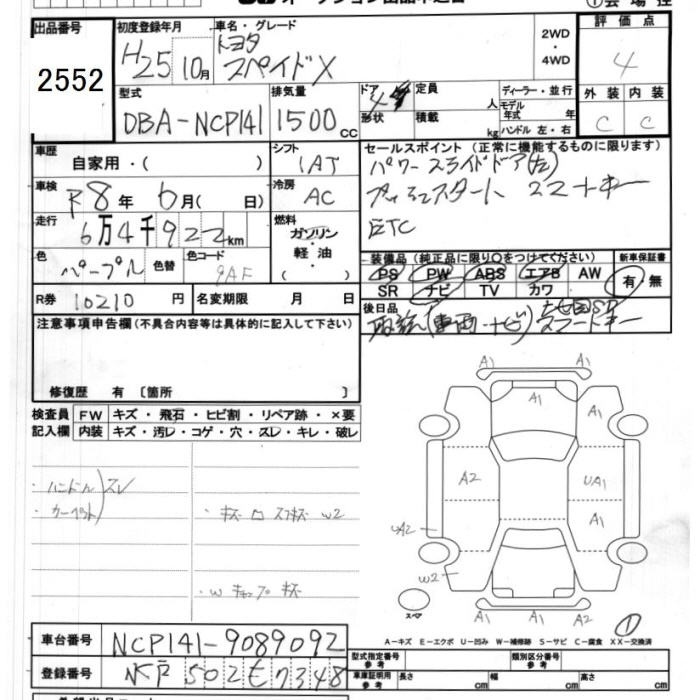 出品番号 初度登録年月 車名・グレード 評価点
2552
H25 10月
トヨタ
スペイドX
2WD
・
4WD
4
型式 排気量 ドア 定員 人 ディーラー・並行
DBA-NCP141 1500cc
形状 積載 kg モデル年式 年
ハンドル 左・右
外装 内装
C C
車歴 シフト セールスポイント (正常に機能するものに限ります)
自家用・( ) IAT
パワースライドドア(左)
車検 冷房
R8年 6月( 日) AC
ETC
走行 燃料
6万4千922km ガソリン・軽油・( )
色 色替 色コード
パープル 9AF
装備品 (純正品に限り○をつけてください) 新車保証書
PS PW ABS エアB AW
SR ナビ TV カワ
有・無
R券 10210円 名変期限 月 日
後日品
取説(車両・ナビ)
スマートキー
注意事項申告欄(不具合内容等は具体的に記入して下さい)
修復歴 有 〔箇所 〕
検査員 FW キズ・飛石・ヒビ割・リペア跡・×要
記入欄 内装 キズ・汚レ・コゲ・穴・スレ・キレ・破レ
ハンドル
カーペット
スレ
W2
A1
A1 A1
A2 UA1
A1
UA2
W2
スペア
A1 A2
1
A-キズ E-エクボ U-凹み W-補修跡 S-サビ C-腐食 XX-交換済
車台番号 NCP141-9089092
登録番号 502 7348
型式指定番号 参考 類別区分番号 参考
車庫証明用 参考 長さ cm 幅 cm 高さ cm